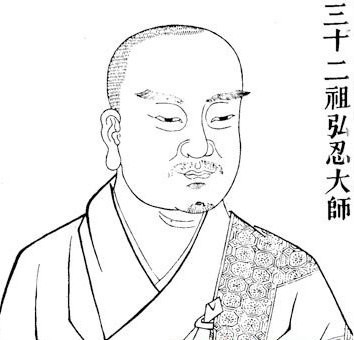 三十二祖弘忍大師